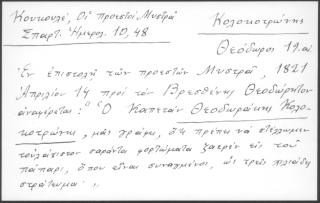 Κουκουλέ, Οἱ προεστοί Μυστρᾶ
Σπαρτ. Ἡμερολ. 10, 48
Κολοκοτρώνης
Θεόδωρος 19. αἰ.
Ἐν ἐπιστολῇ τῶν προεστῶν Μυστρᾶ, 1821
Ἀπριλίου 14 πρὸς τὸν Βρεσθένης Θεοδώρητον
ἀναφέρεται: "Ὁ Καπετὰν Θεοδωράκης Κολο-
κοτρώνης, μᾶς γράφει, ὅτι πρέπει νὰ στέλλωμεν
τοὐλάχιστον σαράντα φορτώματα ζαερὲν εἰς τοῦ
πάπαρι, ὅπου εἶναι συναγμένοι, ὡς τρεῖς χιλιάδες
στράτευμα".